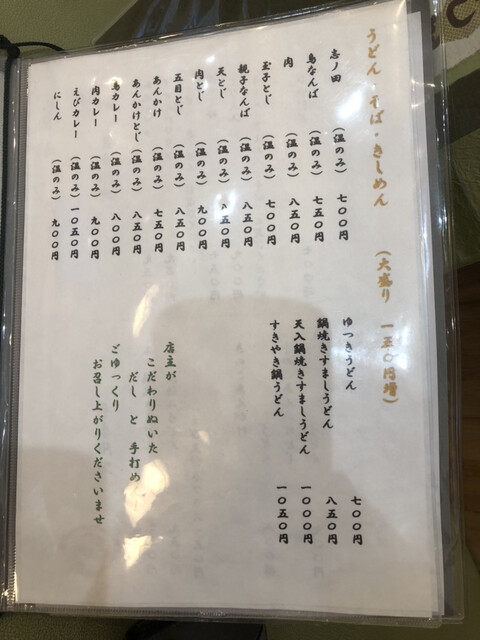 うどん・そば・きしめん (大盛り 一五〇円増)
志ノ田 (温のみ) 七〇〇円
鳥なんば (温のみ) 七五〇円
肉 (温のみ) 八五〇円
玉子とじ (温のみ) 七〇〇円
親子なんば (温のみ) 八五〇円
天とじ (温のみ) 八五〇円
肉とじ (温のみ) 九〇〇円
五目とじ (温のみ) 八五〇円
あんかけ (温のみ) 七五〇円
あんかけとじ (温のみ) 八五〇円
鳥カレー (温のみ) 八〇〇円
肉カレー (温のみ) 九〇〇円
えびカレー (温のみ) 一〇五〇円
にしん (温のみ) 九〇〇円
ゆつきうどん 七〇〇円
鍋焼きすましうどん 八五〇円
天入鍋焼きすましうどん 一〇〇〇円
すきやき鍋うどん 一〇五〇円
店主が
こだわりぬいた
だし と 手打め
ごゆっくり
お召し上がりくださいませ